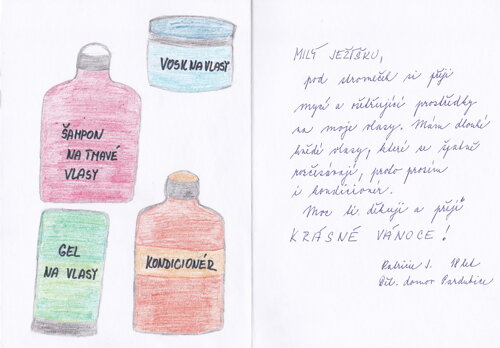 VOSK NA VLASY
ŠAMPON
NA TMAVÉ
VLASY
GEL
NA VLASY
KONDICIONÉR
MILÝ JEŽÍŠKU,
pod stromeček si přeji
mycí a ošetřující prostředky
na moje vlasy. Mám dlouhé
hnědé vlasy, které se špatně
rozčesávají, proto prosím
i kondicionér.
Moc ti děkuji a přeji
KRÁSNÉ VÁNOCE!
Patricie J. 18 let
Dět. domov Pardubice